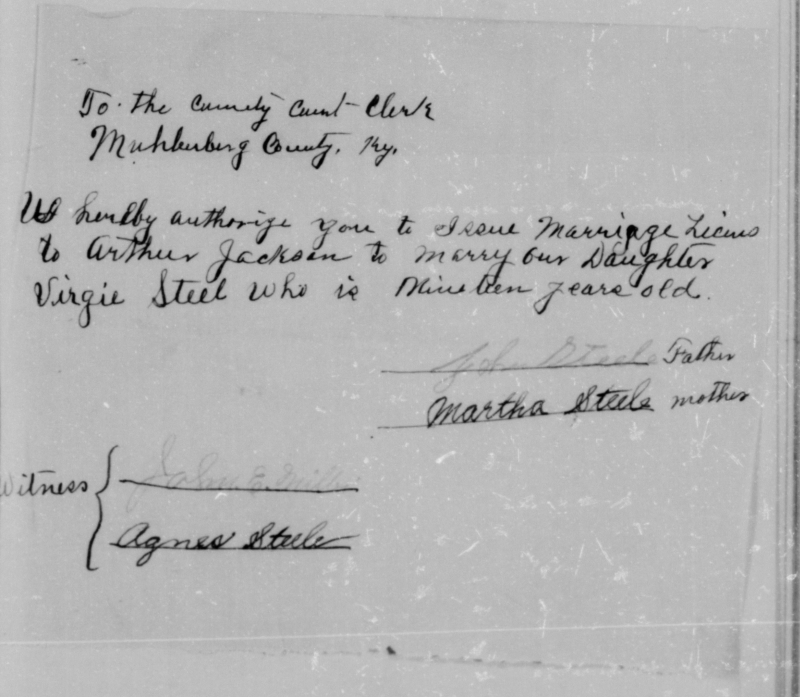 To the County Court Clerk
Muhlenberg County, Ky.
We hereby authorize you to Issue Marriage Licens
to Arthur Jackson to marry our Daughter
Virgie Steel who is Nineteen years old.
John Steele Father
Martha Steele mother
Witness
John E.
Agnes Steele